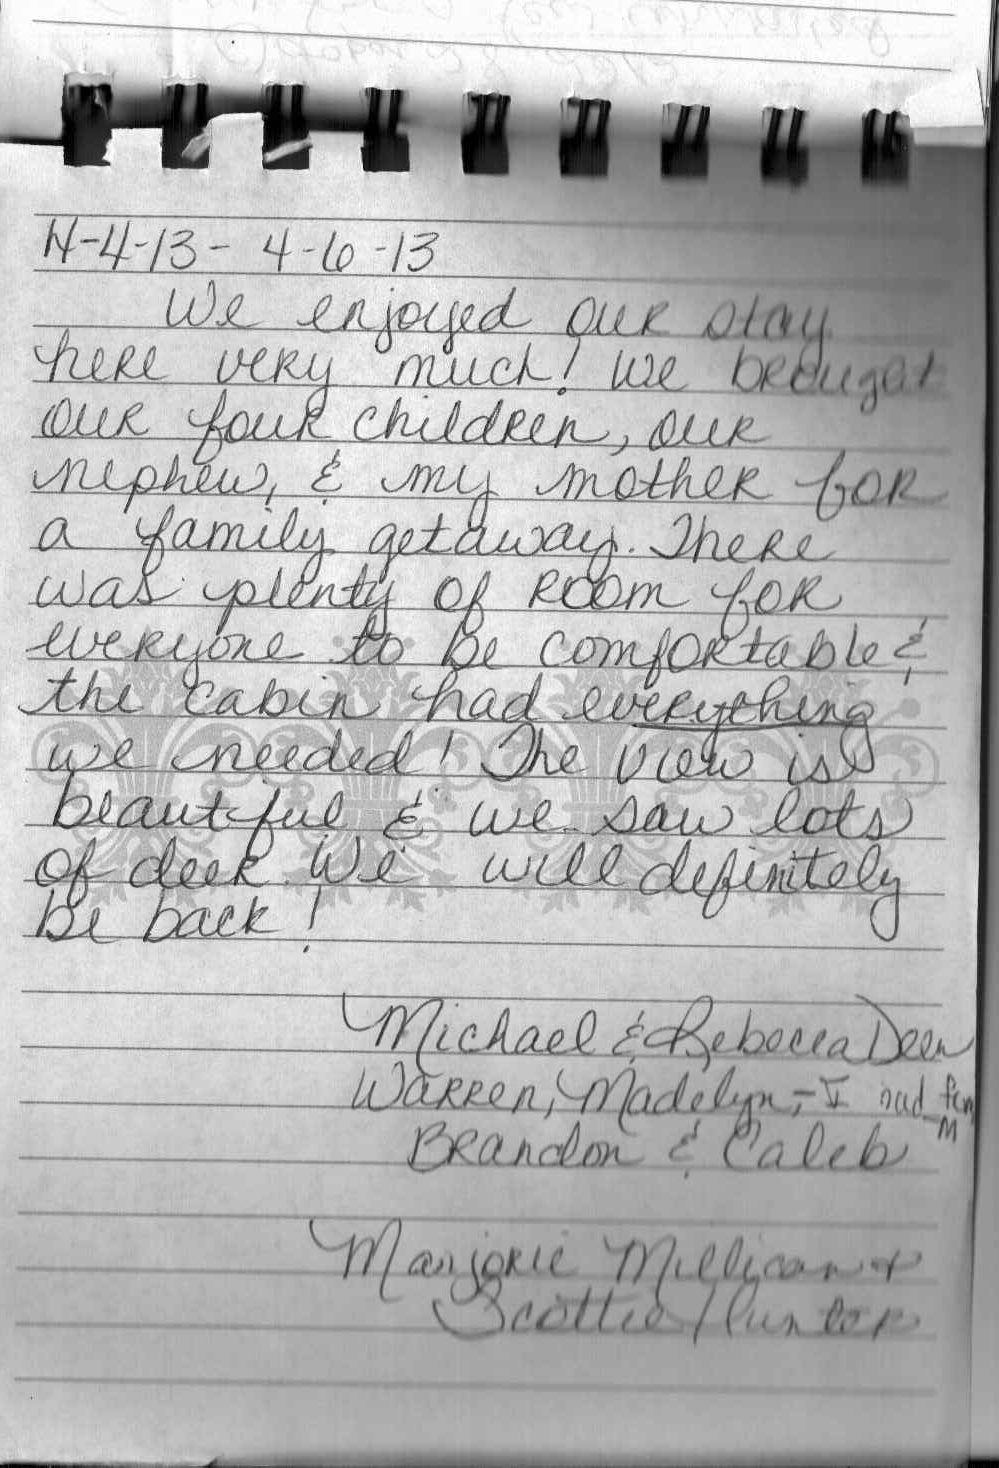 4-4-13 - 4-6-13
We enjoyed our stay
here very much! We brought
our four children, our
nephew, & my mother for
a family getaway. There
was plenty of room for
everyone to be comfortable &
the cabin had everything
we needed! The view is
beautiful & we saw lots
of deer. We will definitely
be back!
Michael & Rebecca Deen
Warren, Madelyn, - I had fun
M
Brandon & Caleb
Marjorie Millican &
Scottie Hunter